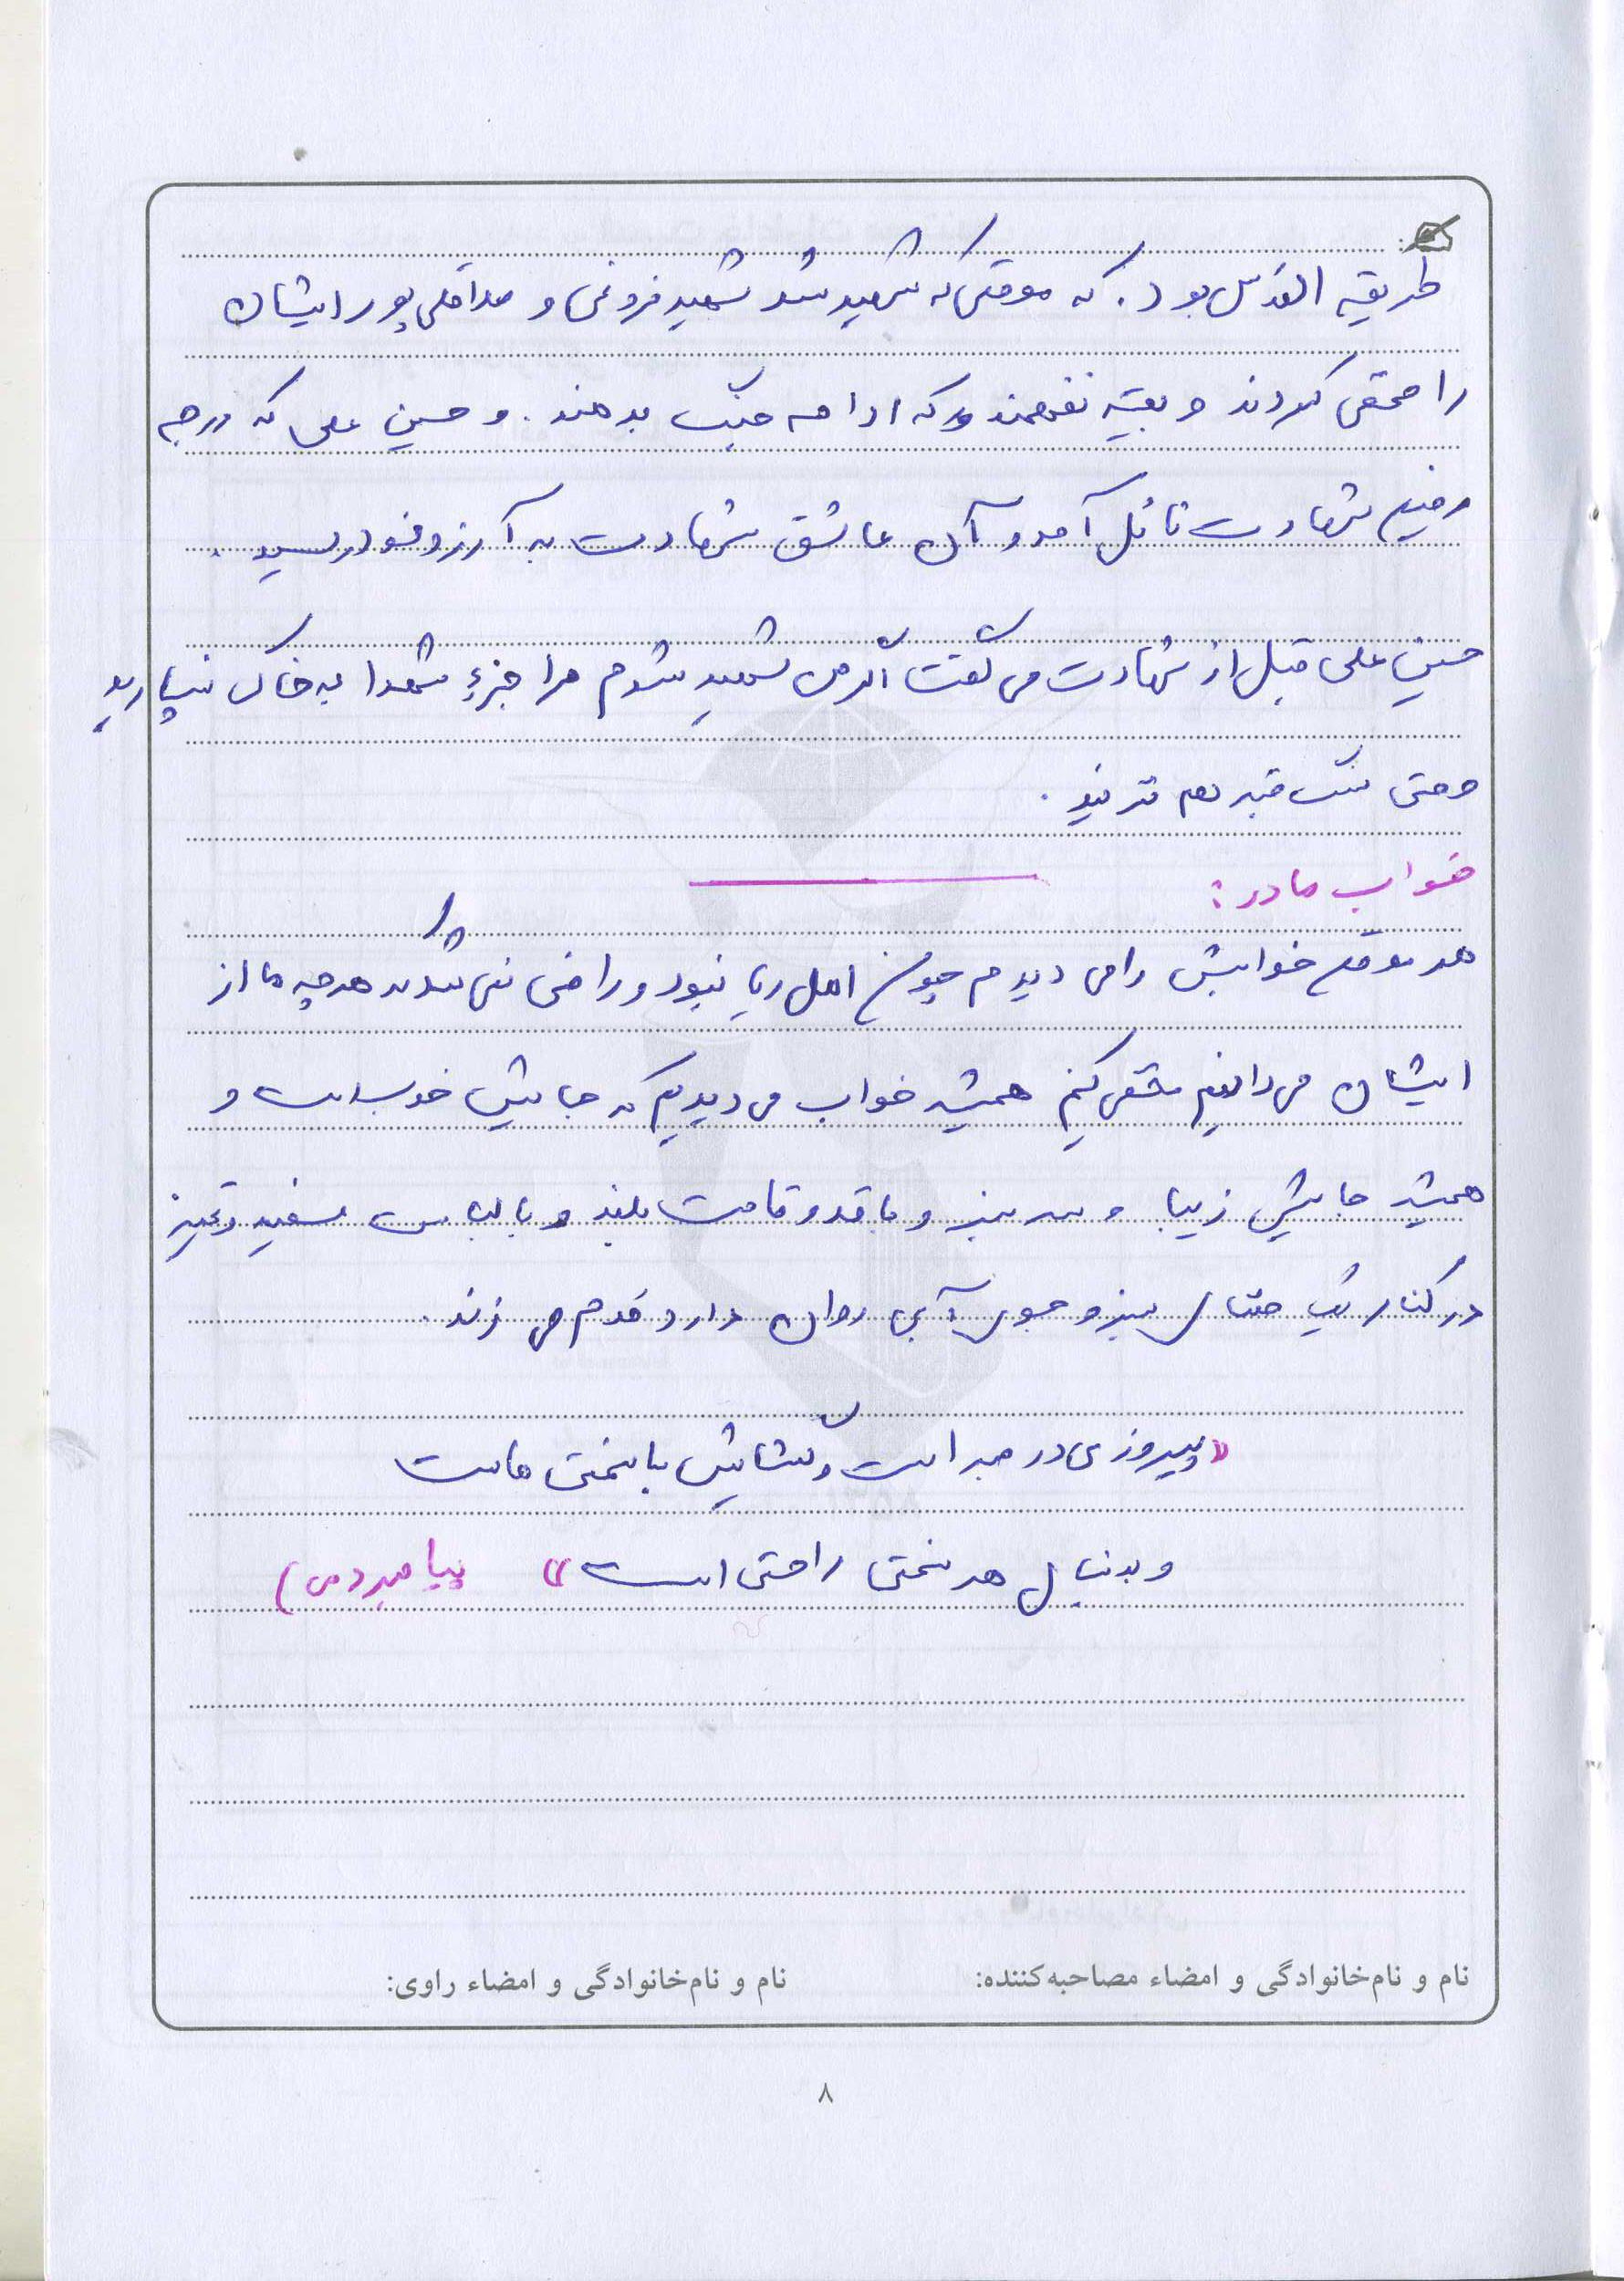 طریق القدس بود. که موقعی که شهید شد شهید فروغی و صداقلی پور ایشان
را مخفی کردند و بقیه نفهمند که ادامه جنگ بدهند. و حسین علی که درجه
رفیع شهادت نائل آمد و آن عاشق شهادت به آرزو خود رسید.
حسین علی قبل از شهادت می گفت اگر من شهید شدم مرا جزء شهدا به خاک نسپارید
و حتی سنگ قبر هم نزنید.
خواب مادر:
هر موقع خوابش را می دیدم چون اهل ریا نبود و راضی نمی شد که هر چه ما از
ایشان می دانیم مخفی کنیم همیشه خواب می دیدیم که جایش خوب است و
همیشه جایش زیبا و سرسبز و با قد و قامت بلند و با لباس سفید و تمیز
در کنار یک جنگل سبز و جوی آبی روان دارد قدم می زند.
«پیروزی در صبر است و گشایش با سختی هاست
و بدنبال هر سختی راحتی است» پیامبر (ص)
نام و نام‌خانوادگی و امضاء مصاحبه‌کننده: نام و نام‌خانوادگی و امضاء راوی:
۸